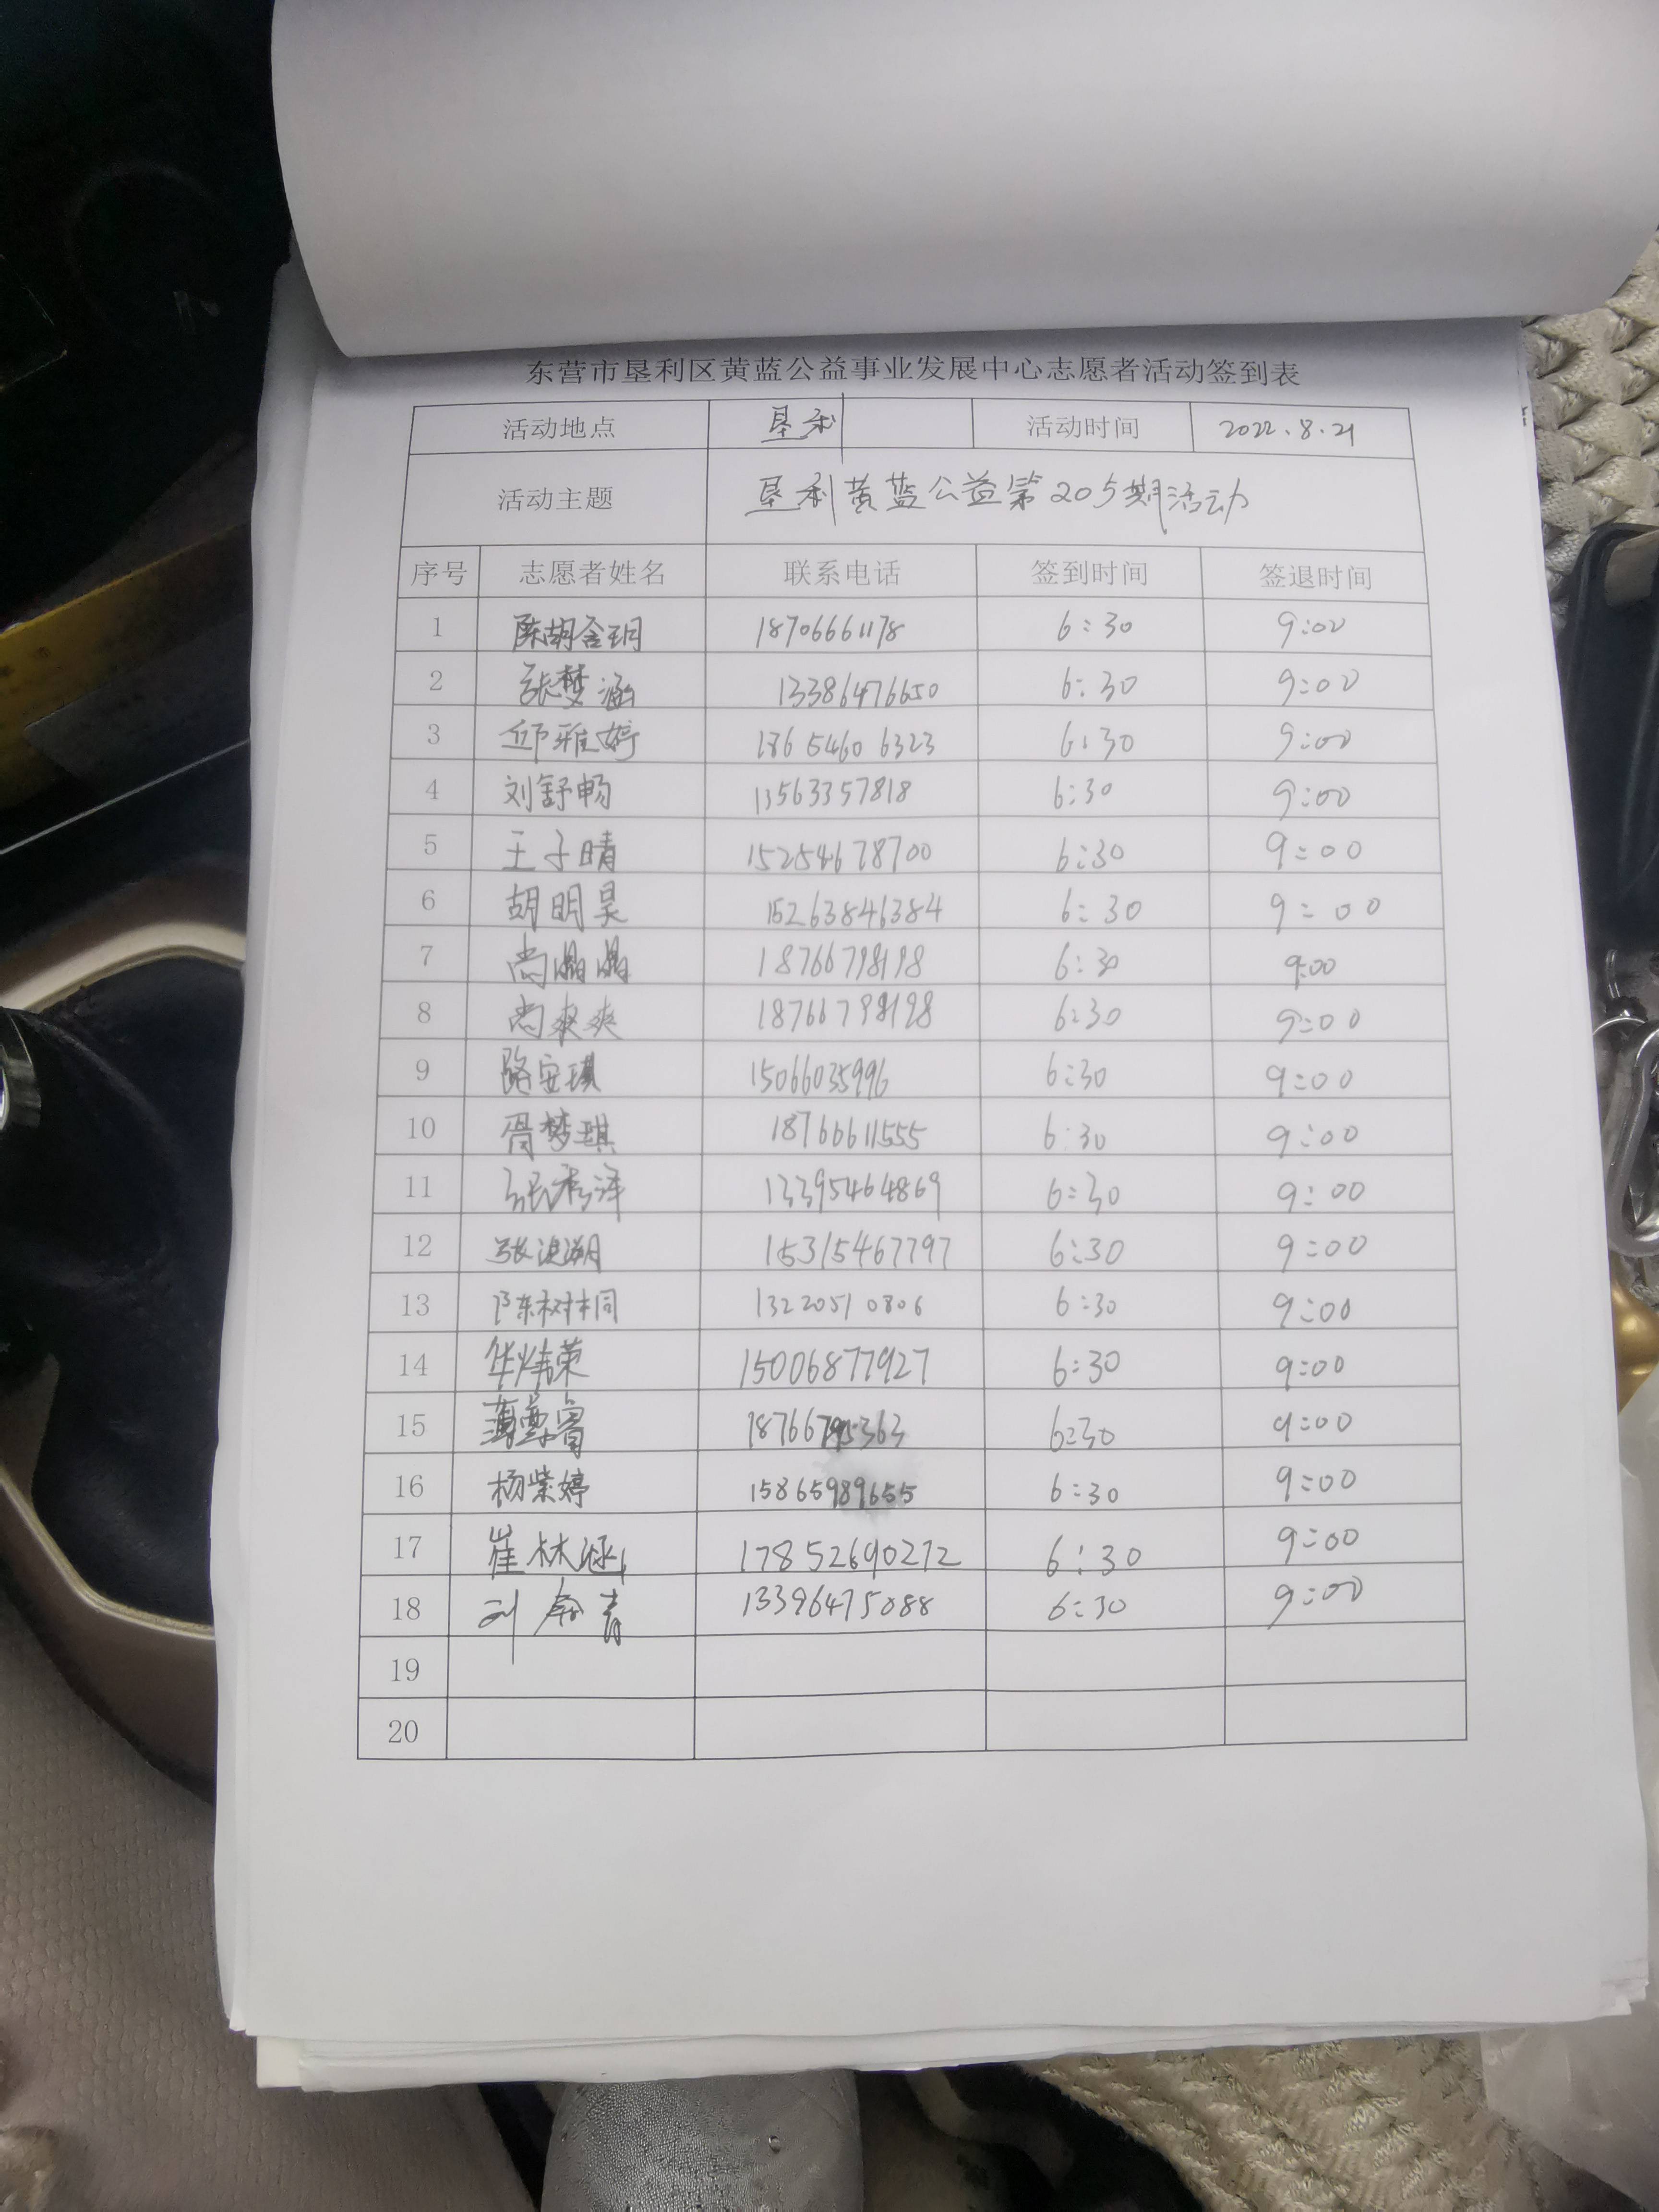 东营市垦利区黄蓝公益事业发展中心志愿者活动签到表
活动地点 垦利 活动时间 2022.8.21
活动主题 垦利黄蓝公益第205期活动
序号 志愿者姓名 联系电话 签到时间 签退时间
1 陈胡含玥 18706661178 6:30 9:00
2 张梦涵 13386476650 6:30 9:00
3 邱雅婷 18654606323 6:30 9:00
4 刘舒畅 13563357818 6:30 9:00
5 王子晴 15254678700 6:30 9:00
6 胡明昊 15263846384 6:30 9:00
7 尚晶晶 18766798198 6:30 9:00
8 尚爽爽 18766798198 6:30 9:00
9 路安琪 15066035996 6:30 9:00
10 周梦琪 18766611555 6:30 9:00
11 13395464869 6:30 9:00
12 15315467797 6:30 9:00
13 陈树桐 13220510806 6:30 9:00
14 华炜荣 15006877927 6:30 9:00
15 6:30 9:00
16 杨紫婷 15865989655 6:30 9:00
17 崔林涵 17852690272 6:30 9:00
18 13396475088 6:30 9:00
19
20